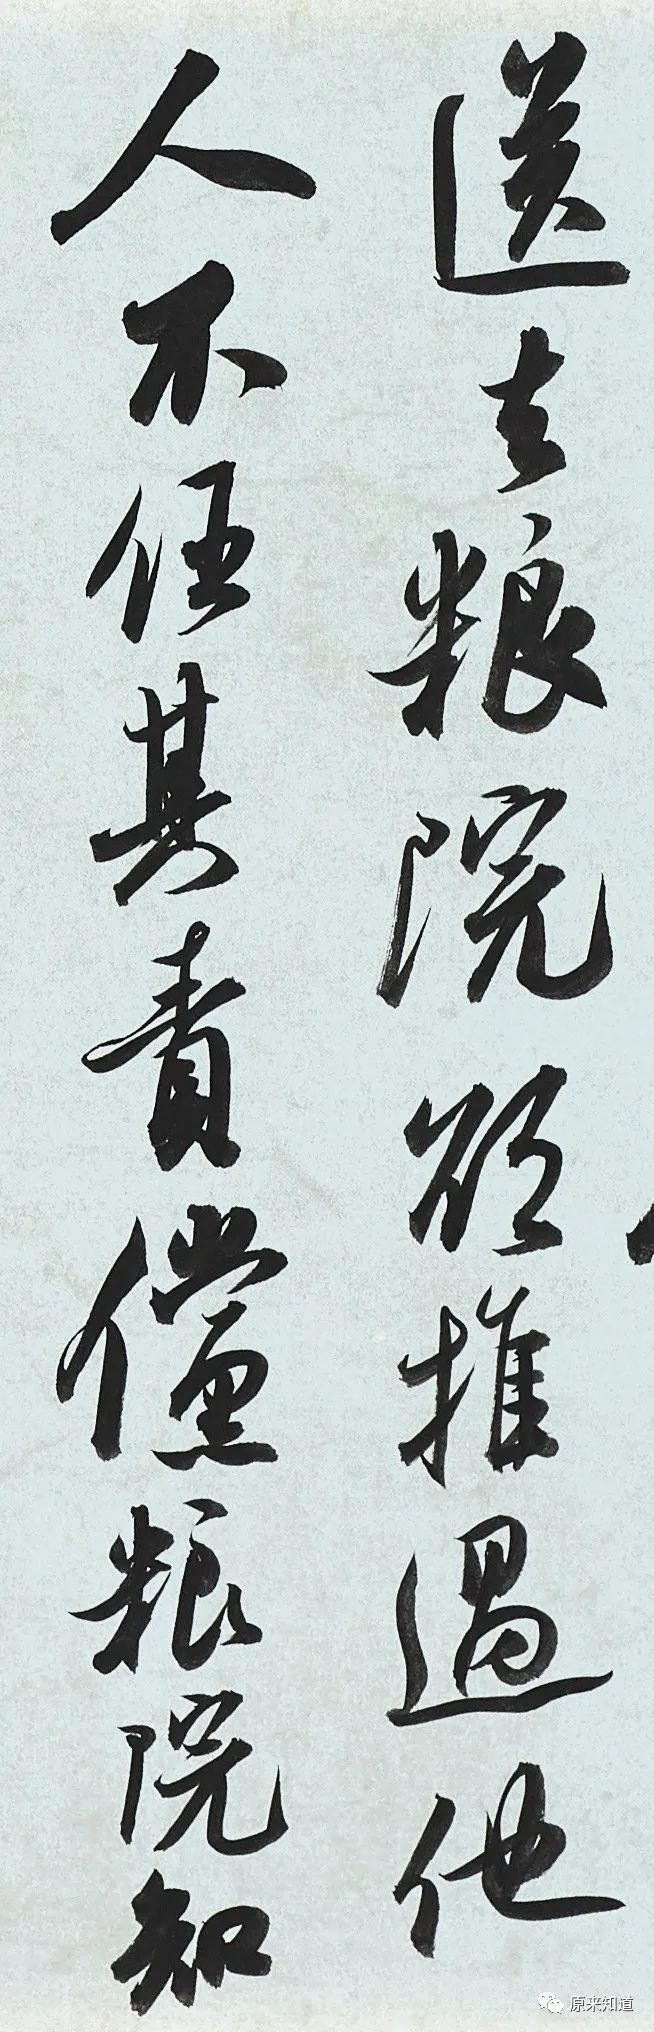 送去粮院欲推过他
人不任其责傥粮院知
原来知道